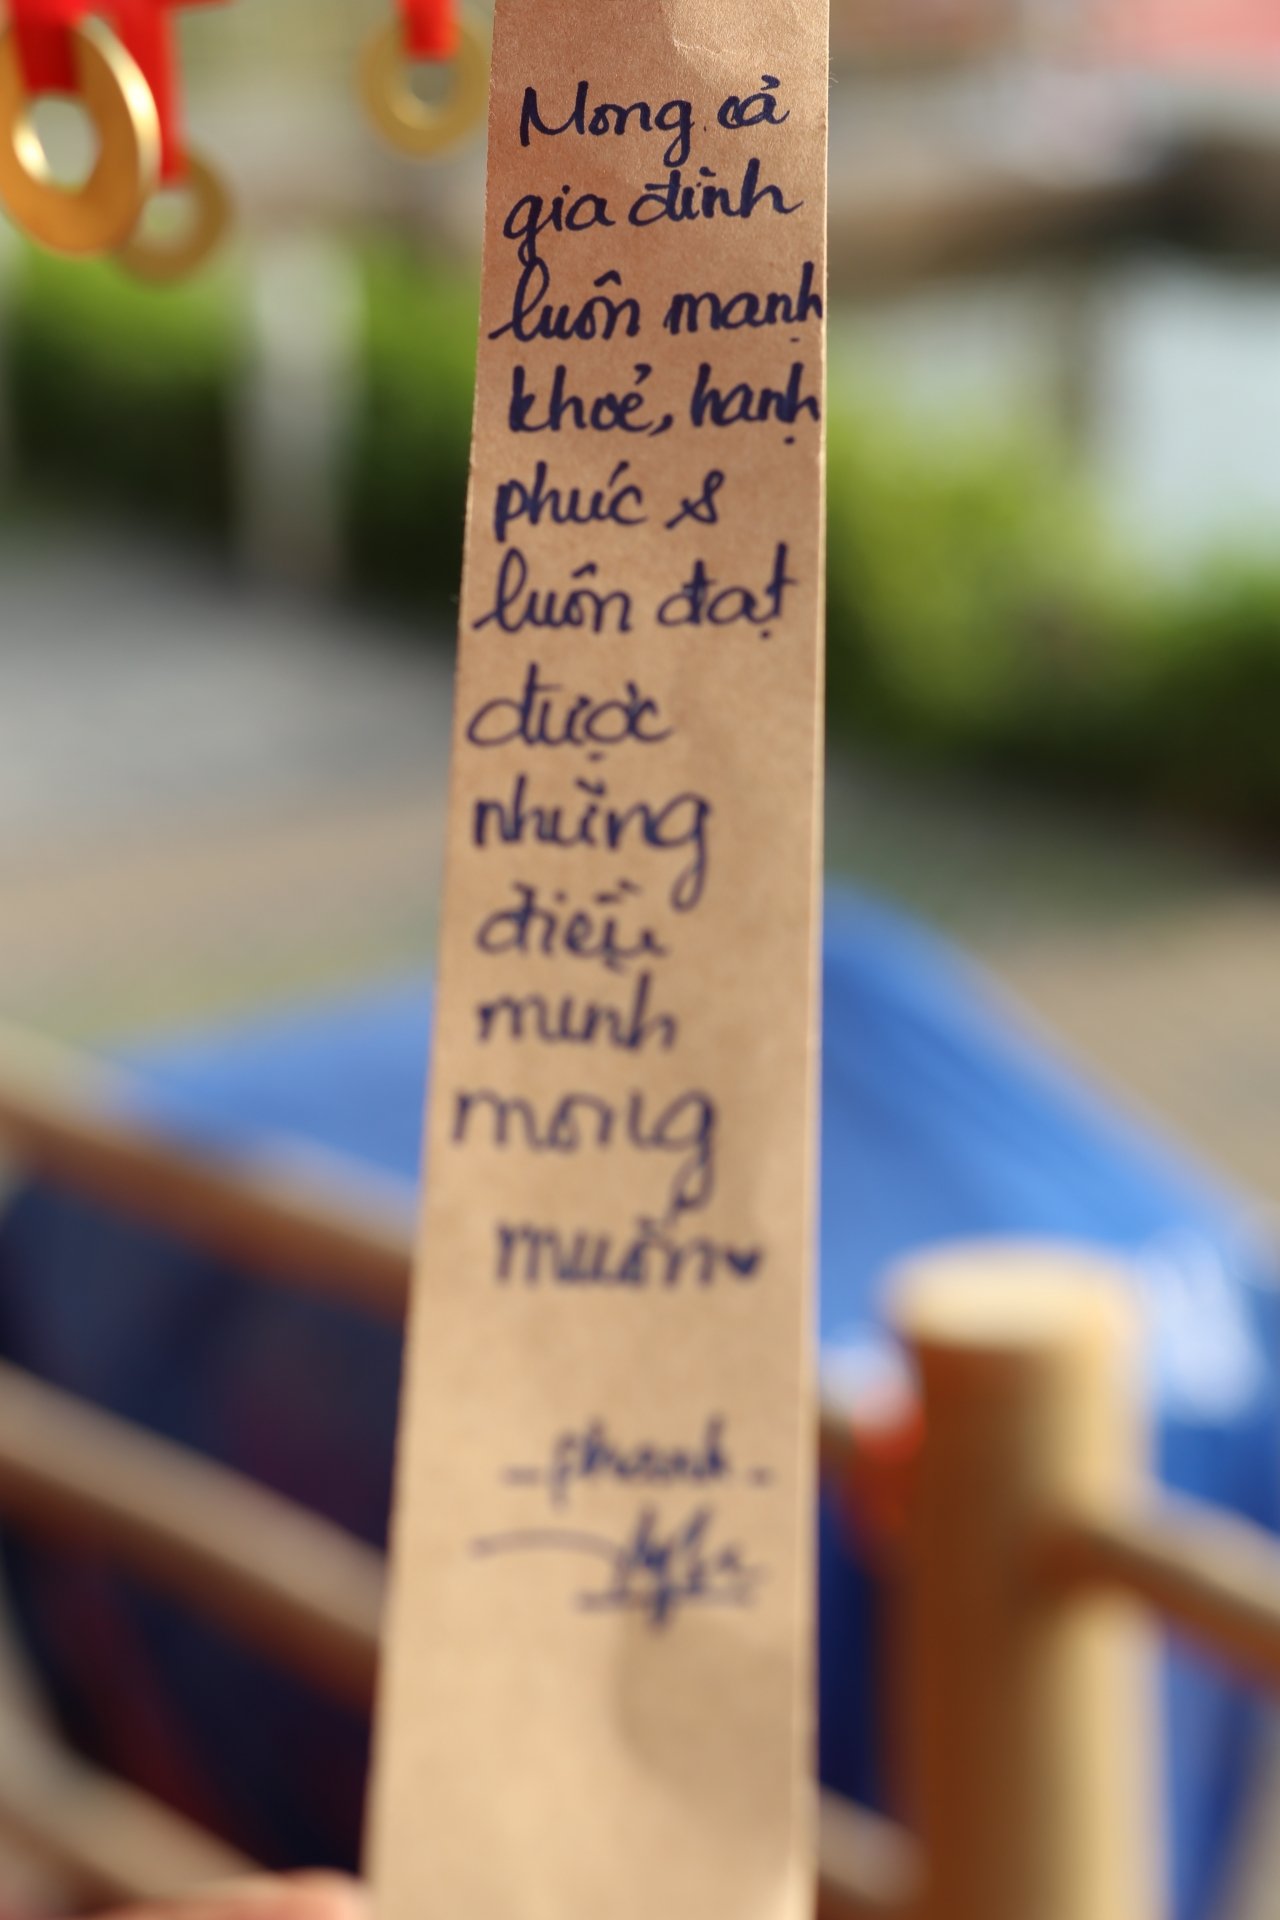 Mong cả
gia đình
luôn mạnh
khoẻ, hạnh
phúc &
luôn đạt
được
những
điều
mình
mong
muốn ♥